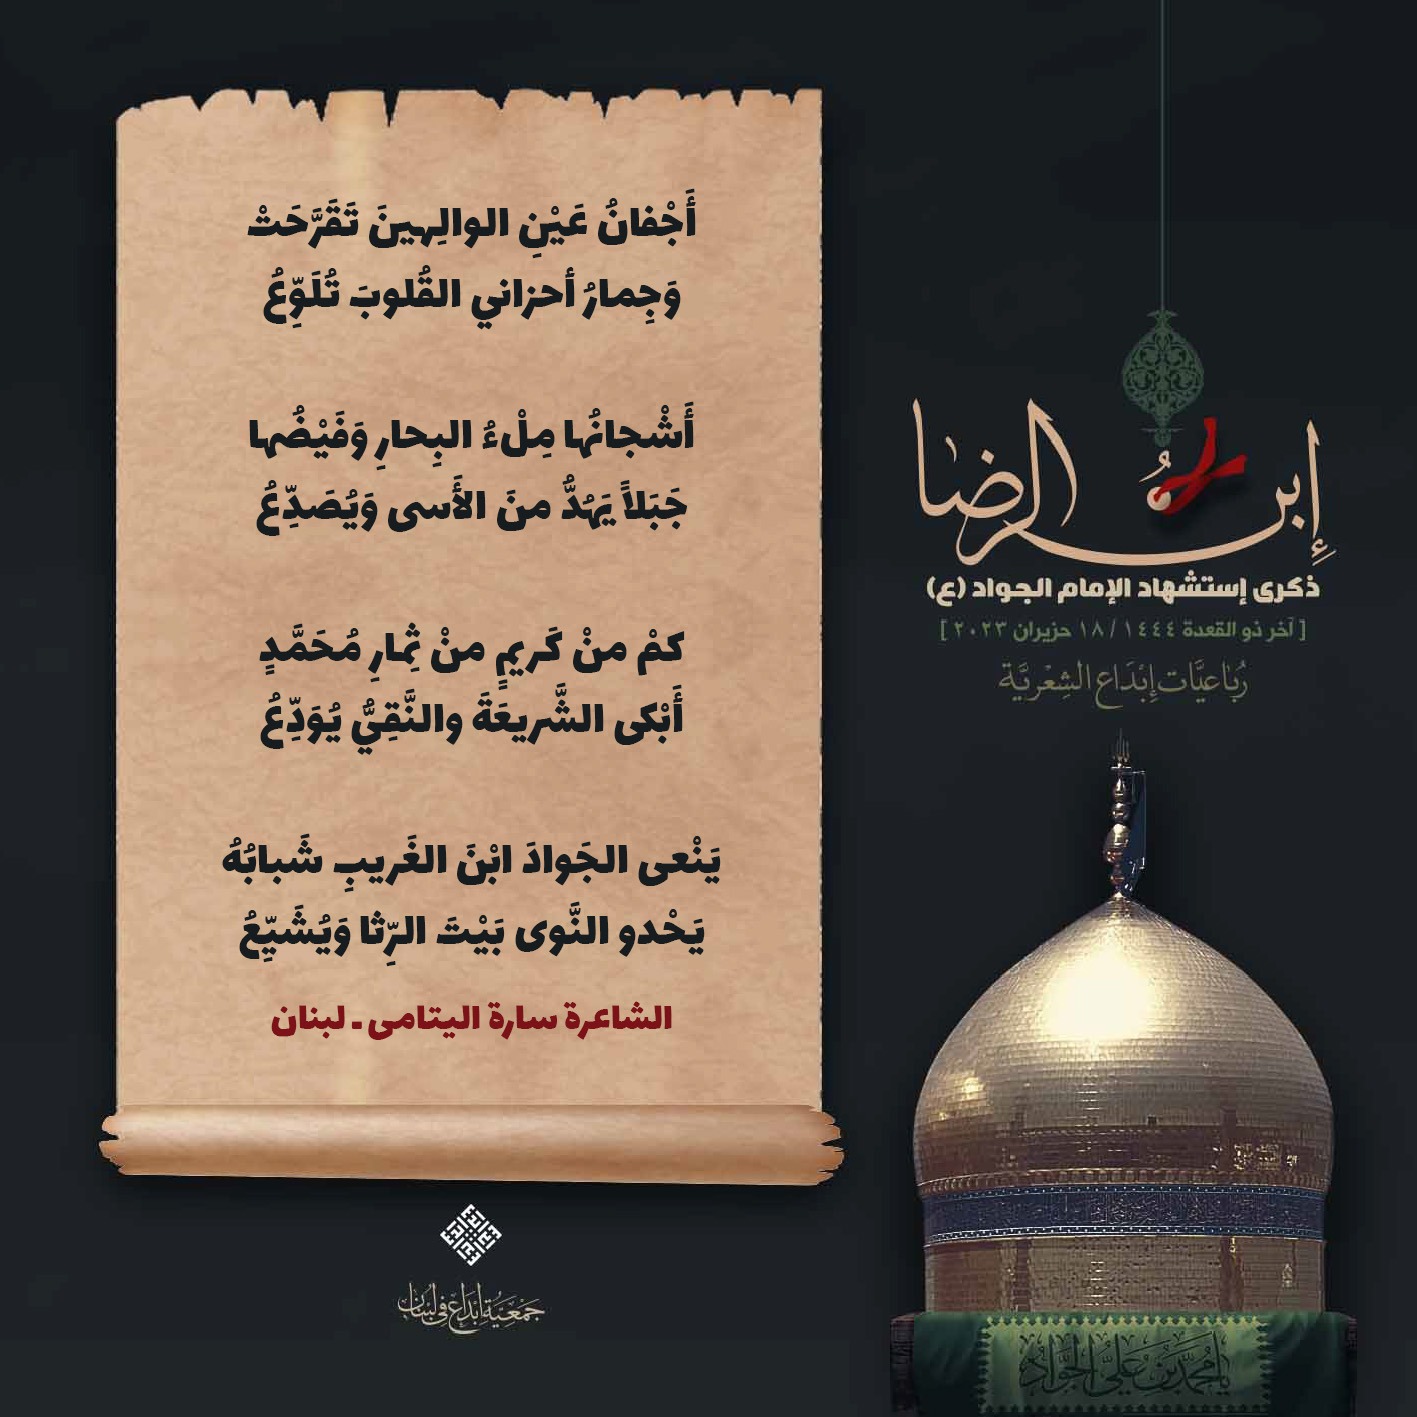 أَجْفانُ عَيْنِ الوالِهينَ تَقَرَّحَتْ
وَجِمارُ أحزاني القُلوبَ تُلَوِّعُ
أَشْجانُها مِلْءُ البِحارِ وَفَيْضُها
جَبَلاً يَهُدُّ منَ الأَسى وَيُصَدِّعُ
كمْ منْ كَريمٍ منْ ثِمارِ مُحَمَّدٍ
أَبْكى الشَّريعَةَ والنَّقِيُّ يُوَدِّعُ
يَنْعى الجَوادَ ابْنَ الغَريبِ شَبابُهُ
يَحْدو النَّوى بَيْتَ الرِّثا وَيُشَيِّعُ
الشاعرة سارة اليتامى ـ لبنان
إبنُ الرضا
ذكرى إستشهاد الإمام الجواد (ع)
[ آخر ذو القعدة ١٤٤٤ / ١٨ حزيران ٢٠٢٣ ]
رُبَاعيَّات إِبْدَاع الشِعْريَّة
يا محمد بن علي الجواد
جَمْعِيَّة إبْدَاع في لبنان